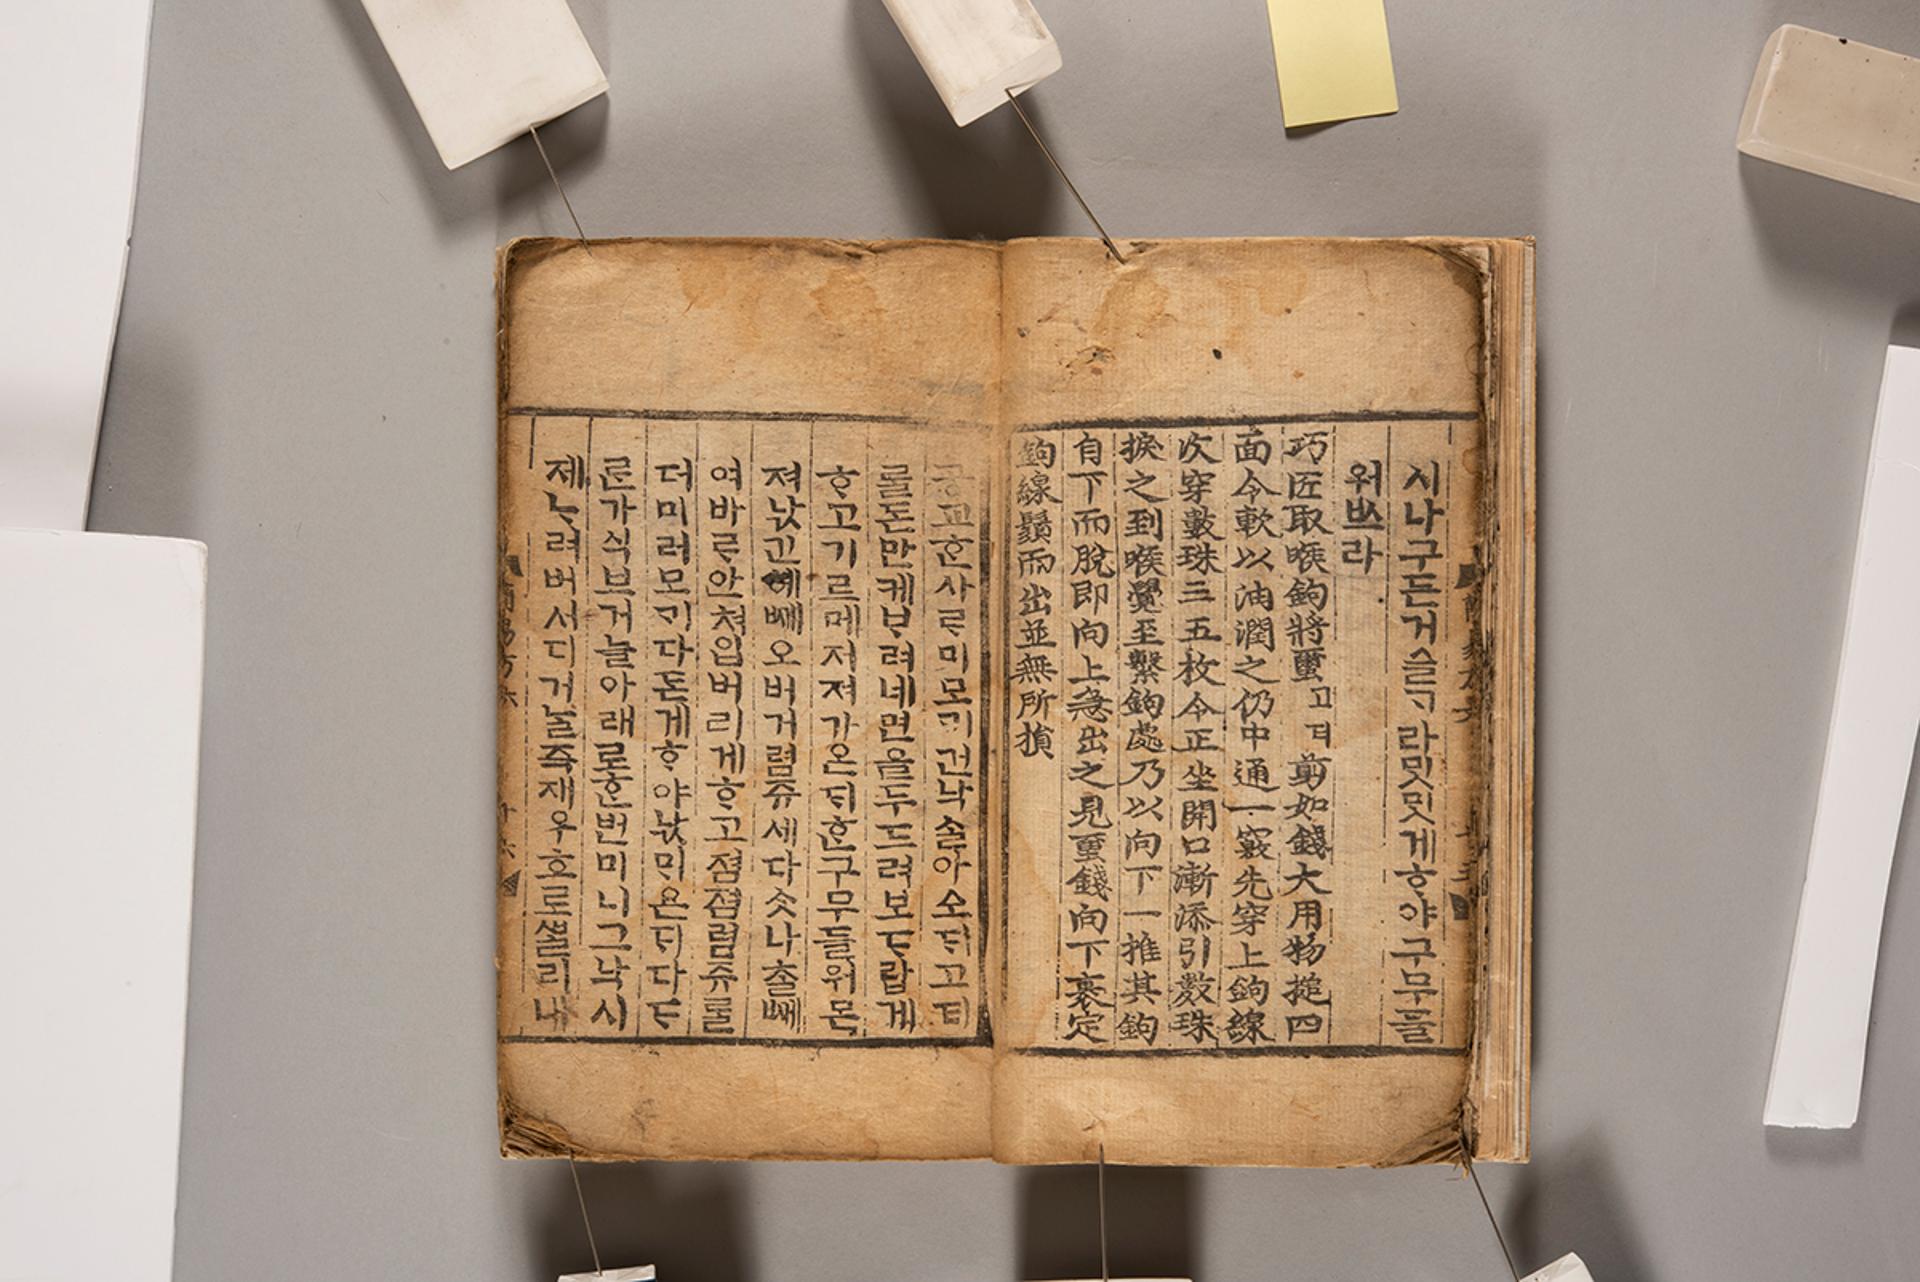 시나구든거슬ᄀᆞ라밋밋게ᄒᆞ야구무들
워ᄡᅳ라
巧匠取喉鉤將蠒고티剪如錢大用物搥四
面令軟以油潤之仍中通一竅先穿上鉤線
次穿數珠三五枚令正坐開口漸添引數珠
捩之到喉覺至繫鉤處乃以向下一推其鉤
自下而脫即向上急出之見蠒錢向下裹定
鉤線鬚而出並無所損
공교ᄒᆞᆫ사ᄅᆞ미모ᄀᆡ건낙솔아소ᄃᆡ고티
ᄅᆞᆯ돈만케ᄇᆞ려네면을두드려보ᄃᆞ랍게
ᄒᆞ고기르메저져가온ᄃᆡᄒᆞᆫ구무들워몬
져낛긴헤ᄢᅦ오버거렴쥬세다ᄉᆞᆺ나츨ᄢᅦ
여바ᄅᆞ안쳐입버리게ᄒᆞ고졈졈렴쥬ᄅᆞᆯ
더미러모ᄀᆡ다ᄃᆞᆮ게ᄒᆞ야낛ᄆᆡ욘ᄃᆡ다ᄃᆞ
ᄅᆞᆫ가식브거늘아래로ᄒᆞᆫ번미니그낙시
제ᄂᆞ려버서디거ᄂᆞᆯ즉재우흐로ᄲᆞᆯ리내
簡易方六
十六